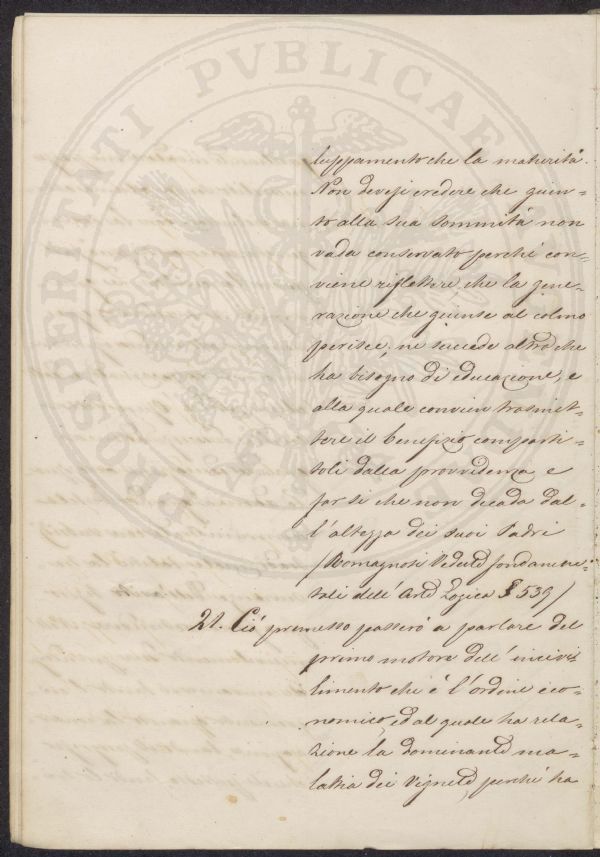 luppamento che la maturità.
Non devesi credere che giun-
to alla sua sommità non
vada conservato perché con-
viene riflettere che la gene-
razione che giunse al colmo
perisce, ne succede altra che
ha bisogno di educazione, e
alla quale convien trasmet-
tere il benefizio comparti-
toli dalla provvidenza e
far si che non decada dal-
l'altezza dei suoi Padri
/Romagnosi Vedute fondamen-
tali dell'Arte Logica § 539/
21. Ciò premesso passerò a parlare del
primo motore dell'incivi-
limento che è l'ordine eco-
nomico, ed al quale ha rela-
zione la dominante ma-
lattia dei Vigneti, perché ha
PROSPERITATI PVBLICAE